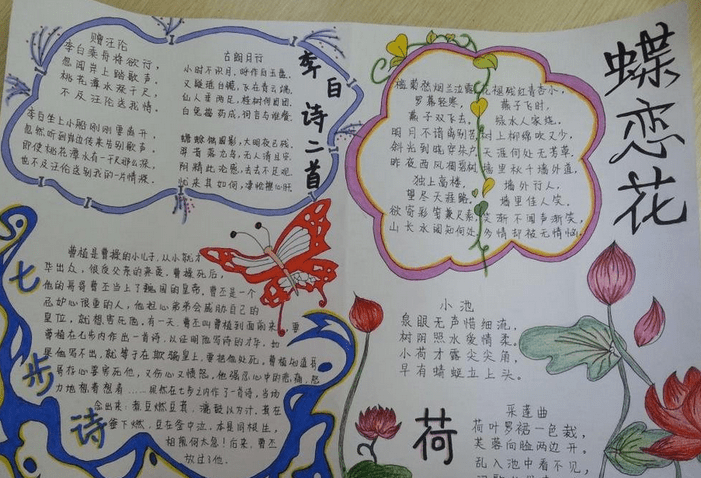 赠汪伦
李白乘舟将欲行，
忽闻岸上踏歌声。
桃花潭水深千尺，
不及汪伦送我情。
李白坐上小船刚刚要离开，
忽然听到岸边传来告别歌声。
即使桃花潭水有一千尺那么深，
也不及汪伦送别我的一片情深。
古朗月行
小时不识月，呼作白玉盘。
又疑瑶台镜，飞在青云端。
仙人垂两足，桂树何团团。
白兔捣药成，问言与谁餐。
蟾蜍蚀圆影，大明夜已残。
羿昔落九乌，天人清且安。
阴精此沦惑，去去不足观。
忧来其如何，凄怆摧心肝
李白诗二首
蝶恋花
槛菊愁烟兰泣露
罗幕轻寒，
燕子双飞去。
明月不谙离别苦
斜光到晓穿朱户
昨夜西风凋碧树
独上高楼，
望尽天涯路。
欲寄彩笺兼尺素
山长水阔知何处
花褪残红青杏小，
燕子飞时，
绿水人家绕。
枝上柳绵吹又少，
天涯何处无芳草。
墙里秋千墙外道，
墙外行人，
墙里佳人笑，
笑渐不闻声渐笑，
多情却被无情恼
七步诗
曹植是曹操的小儿子，从小就才
华出众，很受父亲的亲爱。曹操死后，
他的哥哥曹丕当上了魏国的皇帝。曹丕是一个
忌妒心很重的人，他担心弟弟会威胁自己的
皇位，就想害死他。有一天，曹丕叫曹植到面前来，要
曹植在七步内作出一首诗，以证明他写诗的才华。如
果他写不出，就等于在欺骗皇上，要把他处死。曹植知道哥
哥存心要害死他，又伤心又愤怒。他强忍心中的悲痛，努
力地想着想着……果然在七步之内作了一首诗，当场
念出来：煮豆燃豆萁，漉豉以为汁，萁在
釜下燃，豆在釜中泣，本是同根生，
相煎何太急！后来，曹丕
放过了他。
小池
泉眼无声惜细流，
树阴照水爱情柔。
小荷才露尖尖角，
早有蜻蜓立上头。
荷
采莲曲
荷叶罗裙一色裁，
芙蓉向脸两边开。
乱入池中看不见，